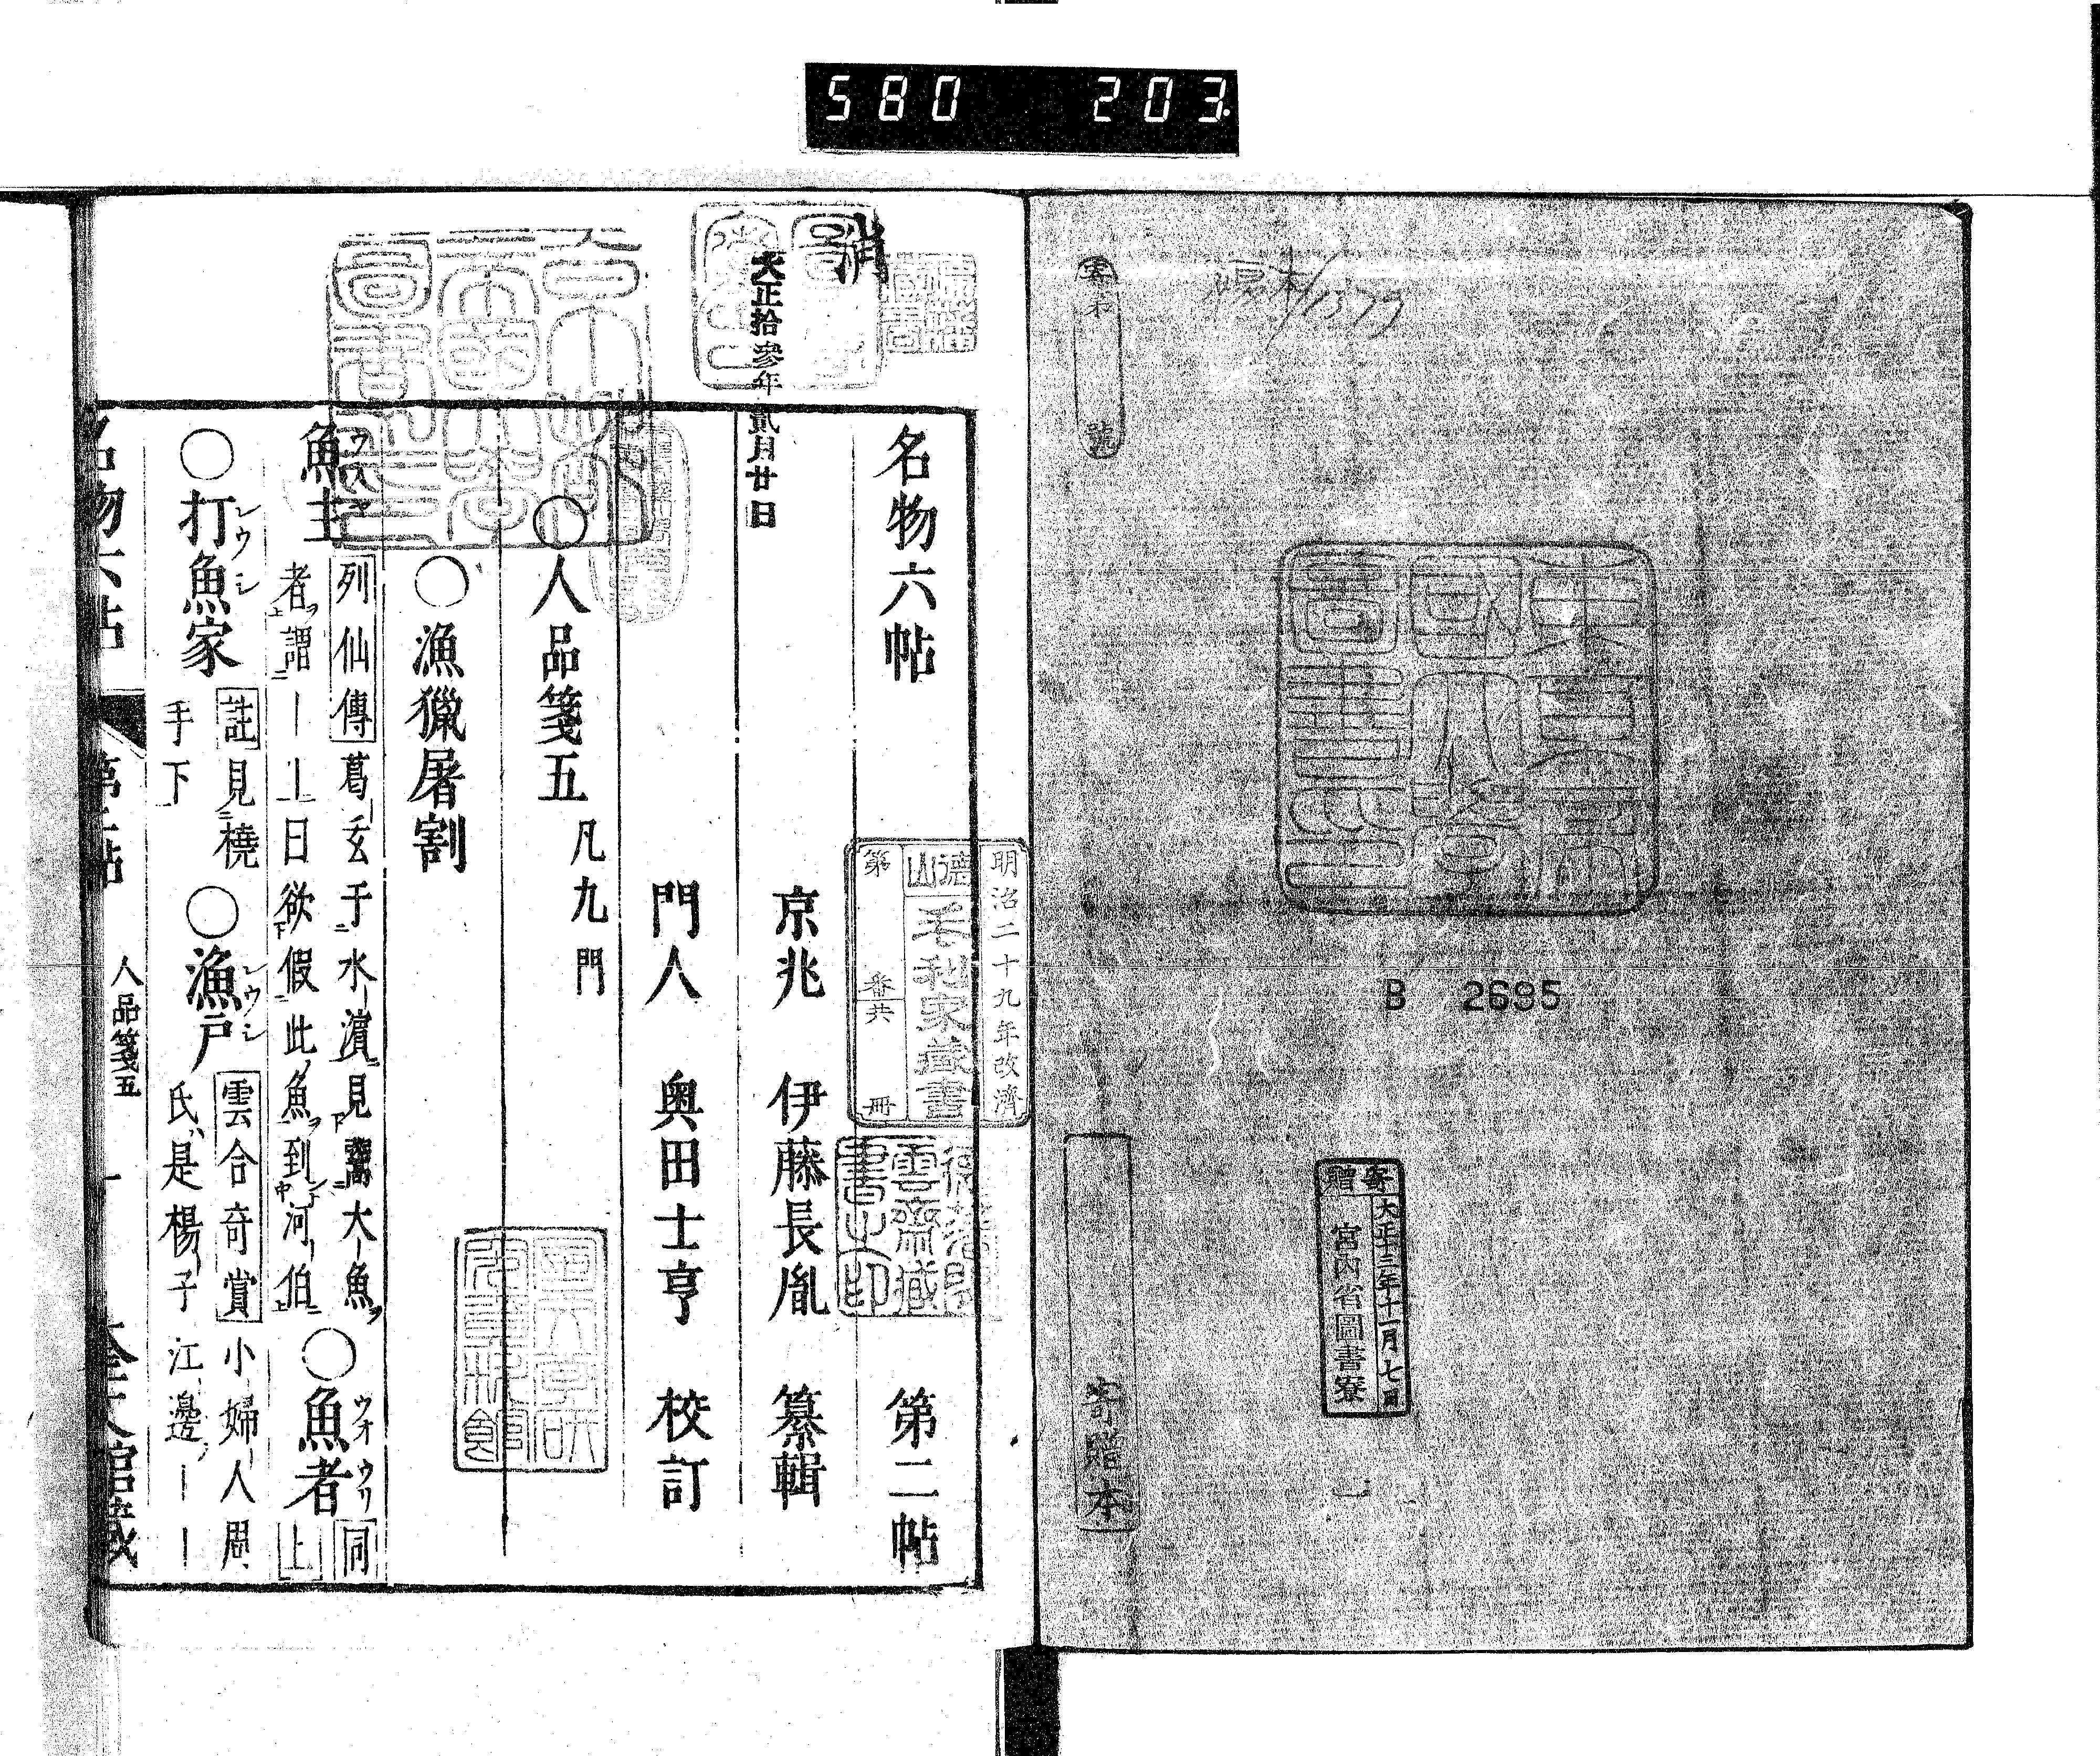 580 203
寄本
號
1379
B 2695
寄贈
大正十三年十一月七日
宮內省圖書寮
寄贈本
消
大正拾參年貳月廿日
明治二十九年改濟
德山
毛利家藏書
第
番共
冊
雲齋藏
書之印
名物六帖 第二帖
京兆 伊藤長胤 纂輯
門人 奧田士亨 校訂
○人品箋五 凡九門
○漁獵屠割
魚主 列仙傳葛玄于水濱見鬻大魚
者謂——曰欲假此魚到河伯
○魚者 ウオウリ 同上
○打魚家 レウシ 註見橈
手下
○漁戶 レウシ 雲合奇賞小婦人周
氏是楊子江邊——
名物六帖 第二帖 人品箋五 一